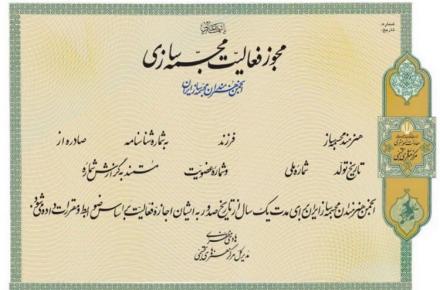 شماره:
تاریخ:
مجوز فعالیت مجسمه سازی
انجمن هنرمندان مجسمه ساز ایران
هنرمند مجسمه ساز فرزند به شماره شناسنامه صادره از
تاریخ تولد شماره ملی و شماره عضویت مستند به گزارش شماره
انجمن هنرمندان مجسمه ساز ایران برای مدت یک سال از تاریخ صدور به ایشان اجازه فعالیت بر اساس ضوابط و مقررات داده می شود.
مدیر کل مرکز هنرهای تجسمی